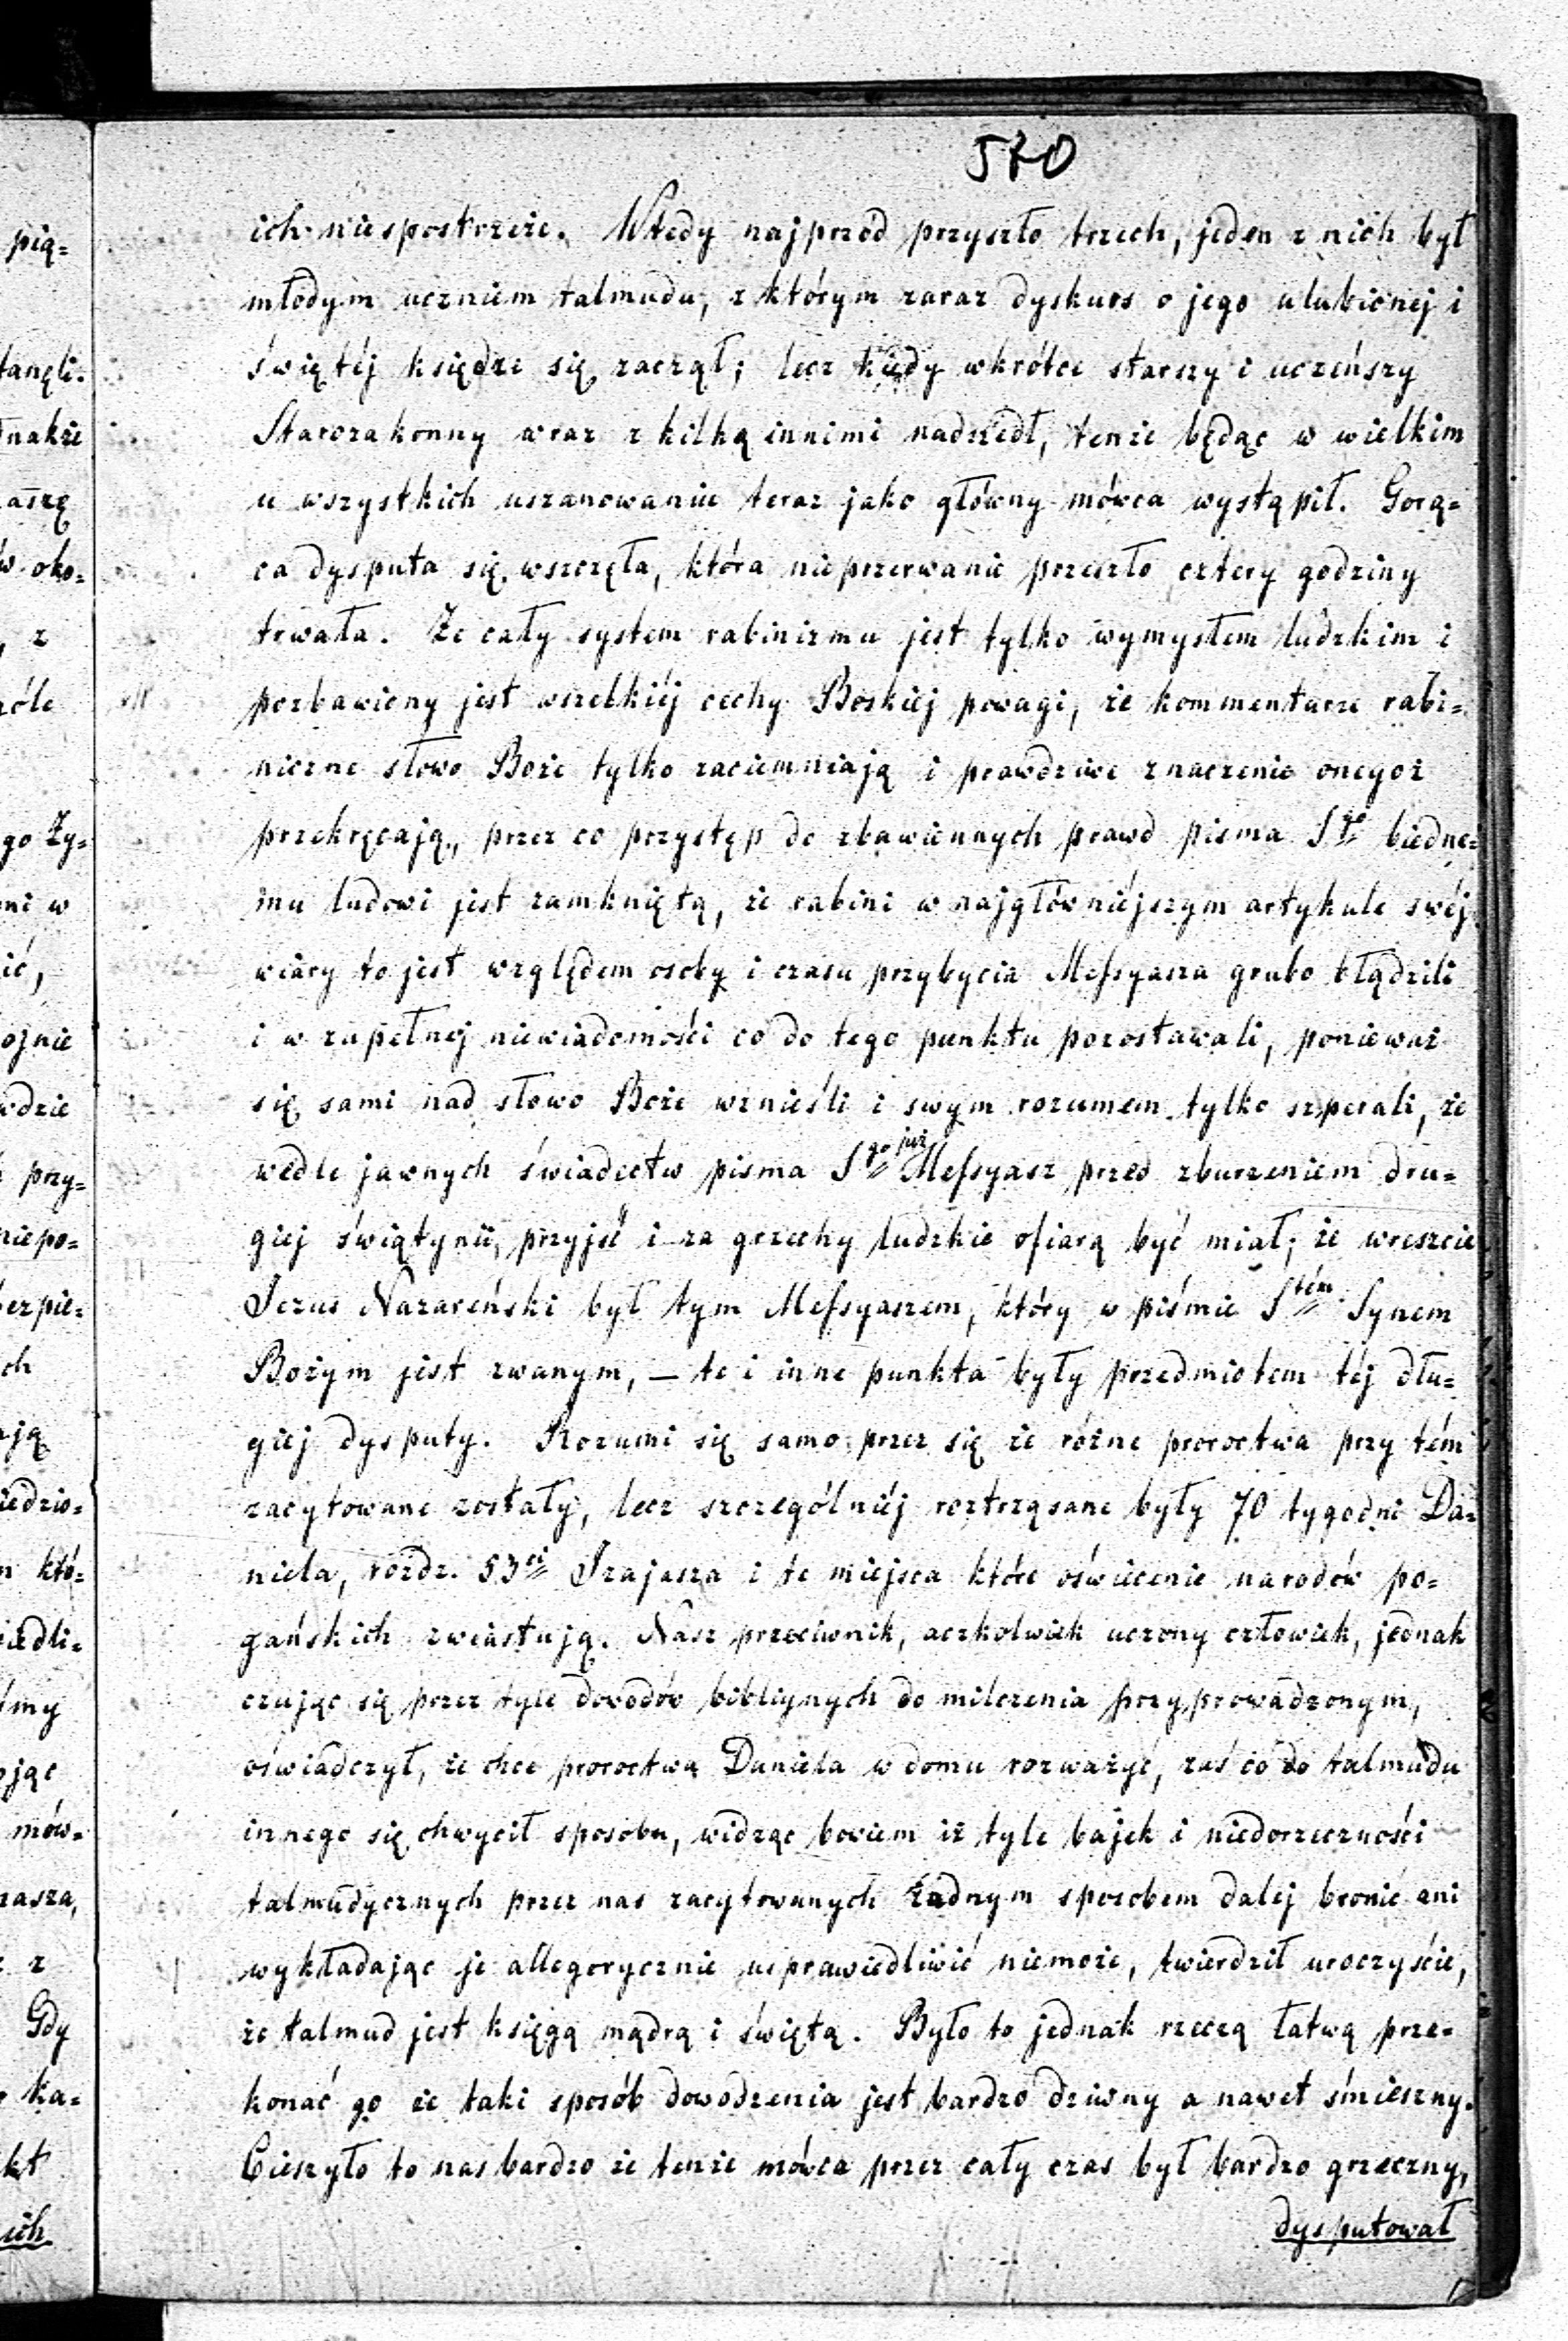 570
ich niespostrzeże. Wtedy najprzód przyszło trzech, jeden z nich był
młodym uczniem talmudu, z którym zaraz dyskurs o jego ulubionej i
świętéj księdze się zaczął; lecz kiedy wkrótce starszy i uczeńszy
Starozakonny wraz z kilką innimi nadszedł, tenże będąc w wielkim
u wszystkich uszanowanie teraz jako główny mówca wystąpił. Gorą=
ca dysputa się wszczęła, która nieprzerwanie przeszło cztery godziny
trwała. Że cały system rabinizmu jest tylko wymysłem ludzkim i
pozbawiony jest wszelkiéj cechy Boskiéj powagi, że kommentarze rabi=
niczne słowo Boże tylko zaciemniają i prawdziwe znaczenie onegoż
przekręcają, przez co przystęp do zbawiennych prawd pisma Sgo biedne=
mu ludowi jest zamkniętą, że rabini w najgłówniéjszym artykule swéj
wiary to jest względem osoby i czasu przybycia Messyasza grubo błądzili
i w zupełnej niewiadomości co do tego punktu pozostawali, ponieważ
się sami nad słowo Boże wznieśli i swym rozumem tylko szperali, że
wedle jawnych świadectw pisma Sgo już Messyasz przed zburzeniem dru=
giej świątynii, przyjść i za grzechy ludzkie ofiarą być miał; że wreszcie
Jezus Nazareński był tym Messyaszem, który w piśmie Stém Synem
Bożym jest zwanym, — te i inne punkta były przedmiotem téj dłu=
giej dysputy. Rozumi się samo przez się że różne proroctwa przy tém
zacytowane zostały, lecz szczególniéj roztrząsane były 70 tygodni Da=
niela, rozdz. 53ci Izajasza i te miejsca które oświecenie narodów po=
gańskich zwiastują. Nasz przeciwnik, aczkolwiek uczony człowiek, jednak
czując się przez tyle dowodów bibliynych do milczenia przyprowadzonym,
oświadczył, że chce proroctwa Daniela w domu rozważyć, zaś co do talmudu
innego się chwycił sposobu, widząc bowiem iż tyle bajek i niedorzeczności
talmudycznych przez nas zacytowanych żadnym sposobem dalej bronić ani
wykładając je allegorycznie usprawiedliwić niemoże, twierdził uroczyście,
że talmud jest księgą mądrą i świętą. Było to jednak rzeczą łatwą prze=
konać go że taki sposób dowodzenia jest bardzo dziwny a nawet śmieszny.
Cieszyło to nas bardzo że tenże mówca przez cały czas był bardzo grzeczny,
dysputował